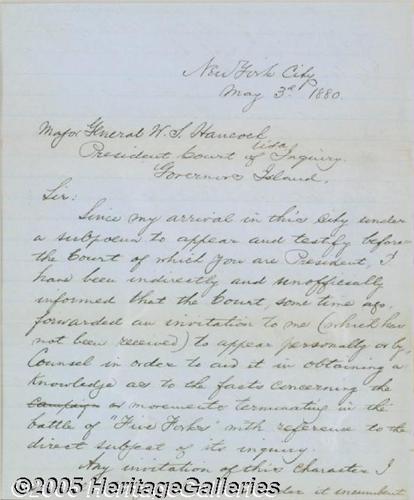 New York City
May 3d 1880.
Major General W. S. Hancock
USA
President Court of Inquiry.
Governors Island.
Sir:
Since my arrival in this City under
a subpoena to appear and testify before
the Court of which you are President, I
have been indirectly and unofficially
informed that the Court, some time ago,
forwarded an invitation to me (which has
not been received) to appear personally or by
Counsel in order to aid it in obtaining a
knowledge as to the facts concerning the
Campaign movements terminating in the
battle of "Five Forks" with reference to the
direct subject of its inquiry.
Any invitation of this character I
it incumbent
©2005 HeritageGalleries